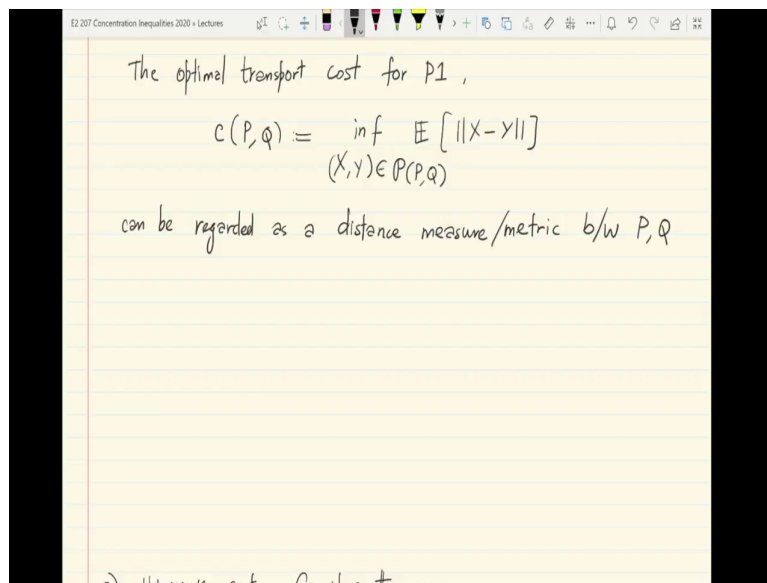 E2 207 Concentration Inequalities 2020 » Lectures
The optimal transport cost for P1,
c(P,Q) := inf E[||X-Y||]
(X,Y)∈P(P,Q)
can be regarded as a distance measure/metric b/w P,Q